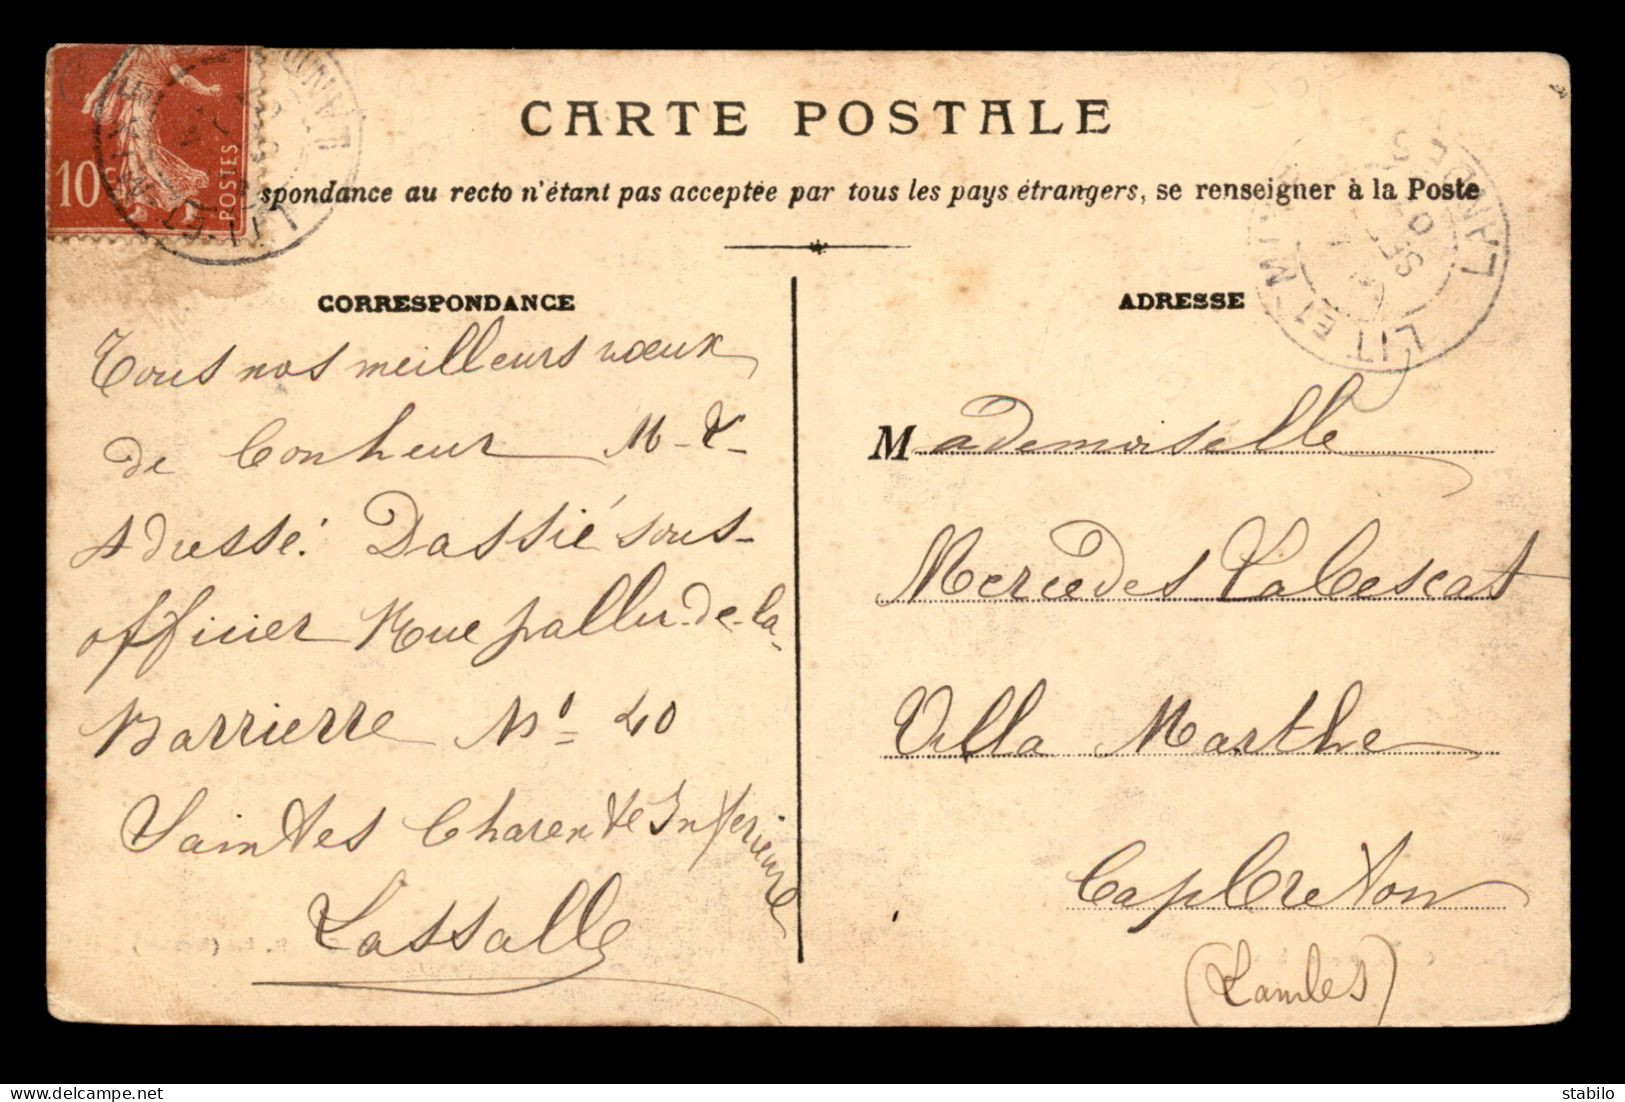 CARTE POSTALE
spondance au recto n'étant pas acceptée par tous les pays étrangers, se renseigner à la Poste
10
POSTES
LIT-ET-MIXE
LANDES
LIT-ET-MI
LANDES
CORRESPONDANCE
Tous nos meilleurs voeux
de Bonheur M-L-
Adresse: Dassié sous-
officier Rue pallu-de-la-
Barrierre No 40
Saintes Charente Inferieure
Lassalle
ADRESSE
Mademoiselle
Mercedes Labescat
Villa Marthe
CapBreton
(Landes)
stabilo